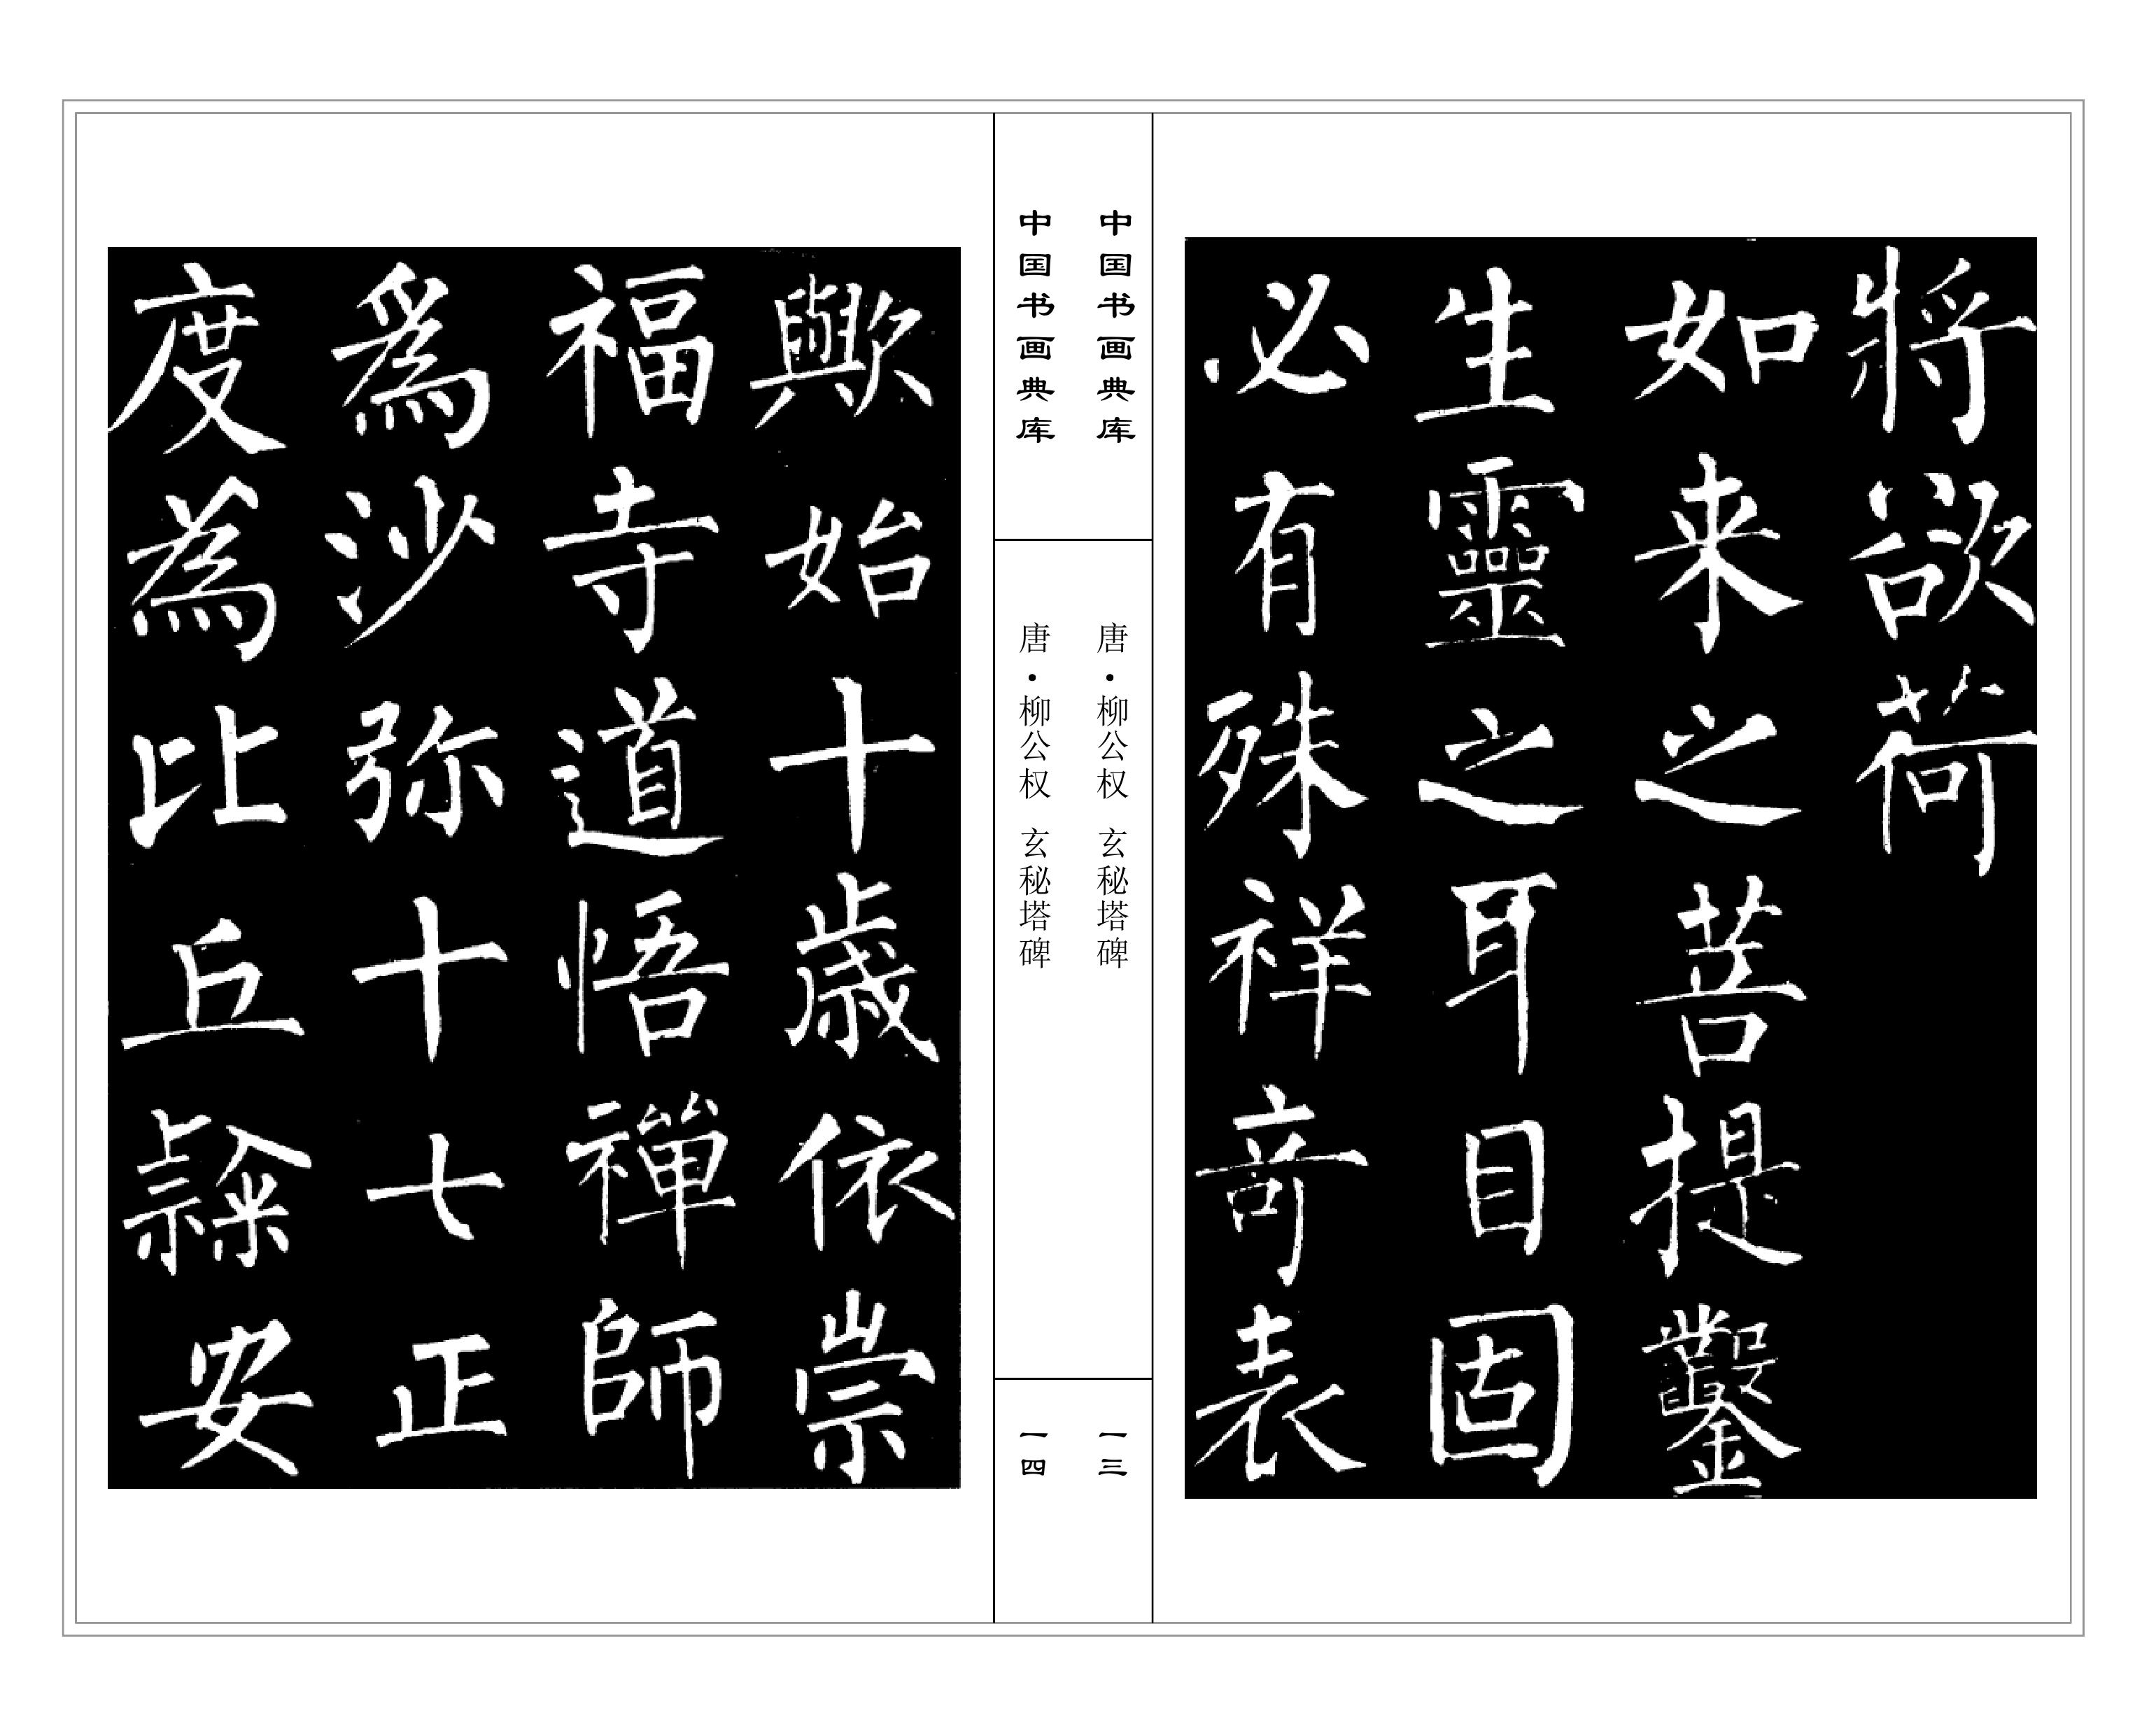 將欲荷
如来之菩提鑿
生靈之耳目固
必有殊祥竒表
中国书画典库
唐·柳公权 玄秘塔碑
一三
中国书画典库
唐·柳公权 玄秘塔碑
一四
歟始十歲依崇
福寺道悟禪師
爲沙弥十七正
度爲比丘隸安